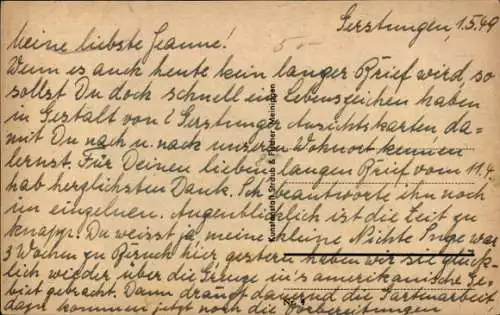 Gerstungen, 1.5.49
Meine liebste Jeanne!
Wenn es auch heute kein langer Brief wird, so
sollst Du doch schnell ein Lebenszeichen haben
in Gestalt von 2 Gerstunger Ansichtskarten da-
mit Du nach u. nach unseren Wohnort kennen
lernst. Für Deinen lieben langen Brief vom 11.4.
hab herzlichsten Dank. Ich beantworte ihn noch
im einzelnen. Augenblicklich ist die Zeit zu
knapp. Du weisst ja meine kleine Nichte Inge war
3 Wochen zu Besuch hier, gestern haben wir sie glück-
lich wieder über die Grenze in's amerikanische Ge-
biet gebracht. Dann drauft dauernd die Gartenarbeit,
dazu kommen jetzt noch die Vorbereitungen
Kunstverlag Straub & Fischer Meiningen